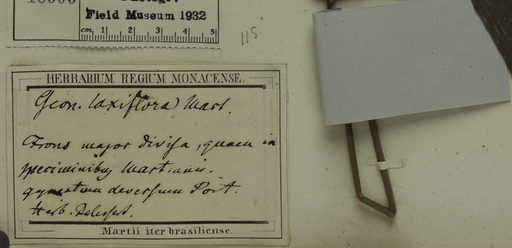 Field Museum 1932
cm 1 2 3 4 5
115
HERBARIUM REGIUM MONACENSE.
Geon. laxiflora Mart.
Frons major divisa, quam in
speciminibus Martianis.
diversum
Herb.
Martii iter brasiliense.